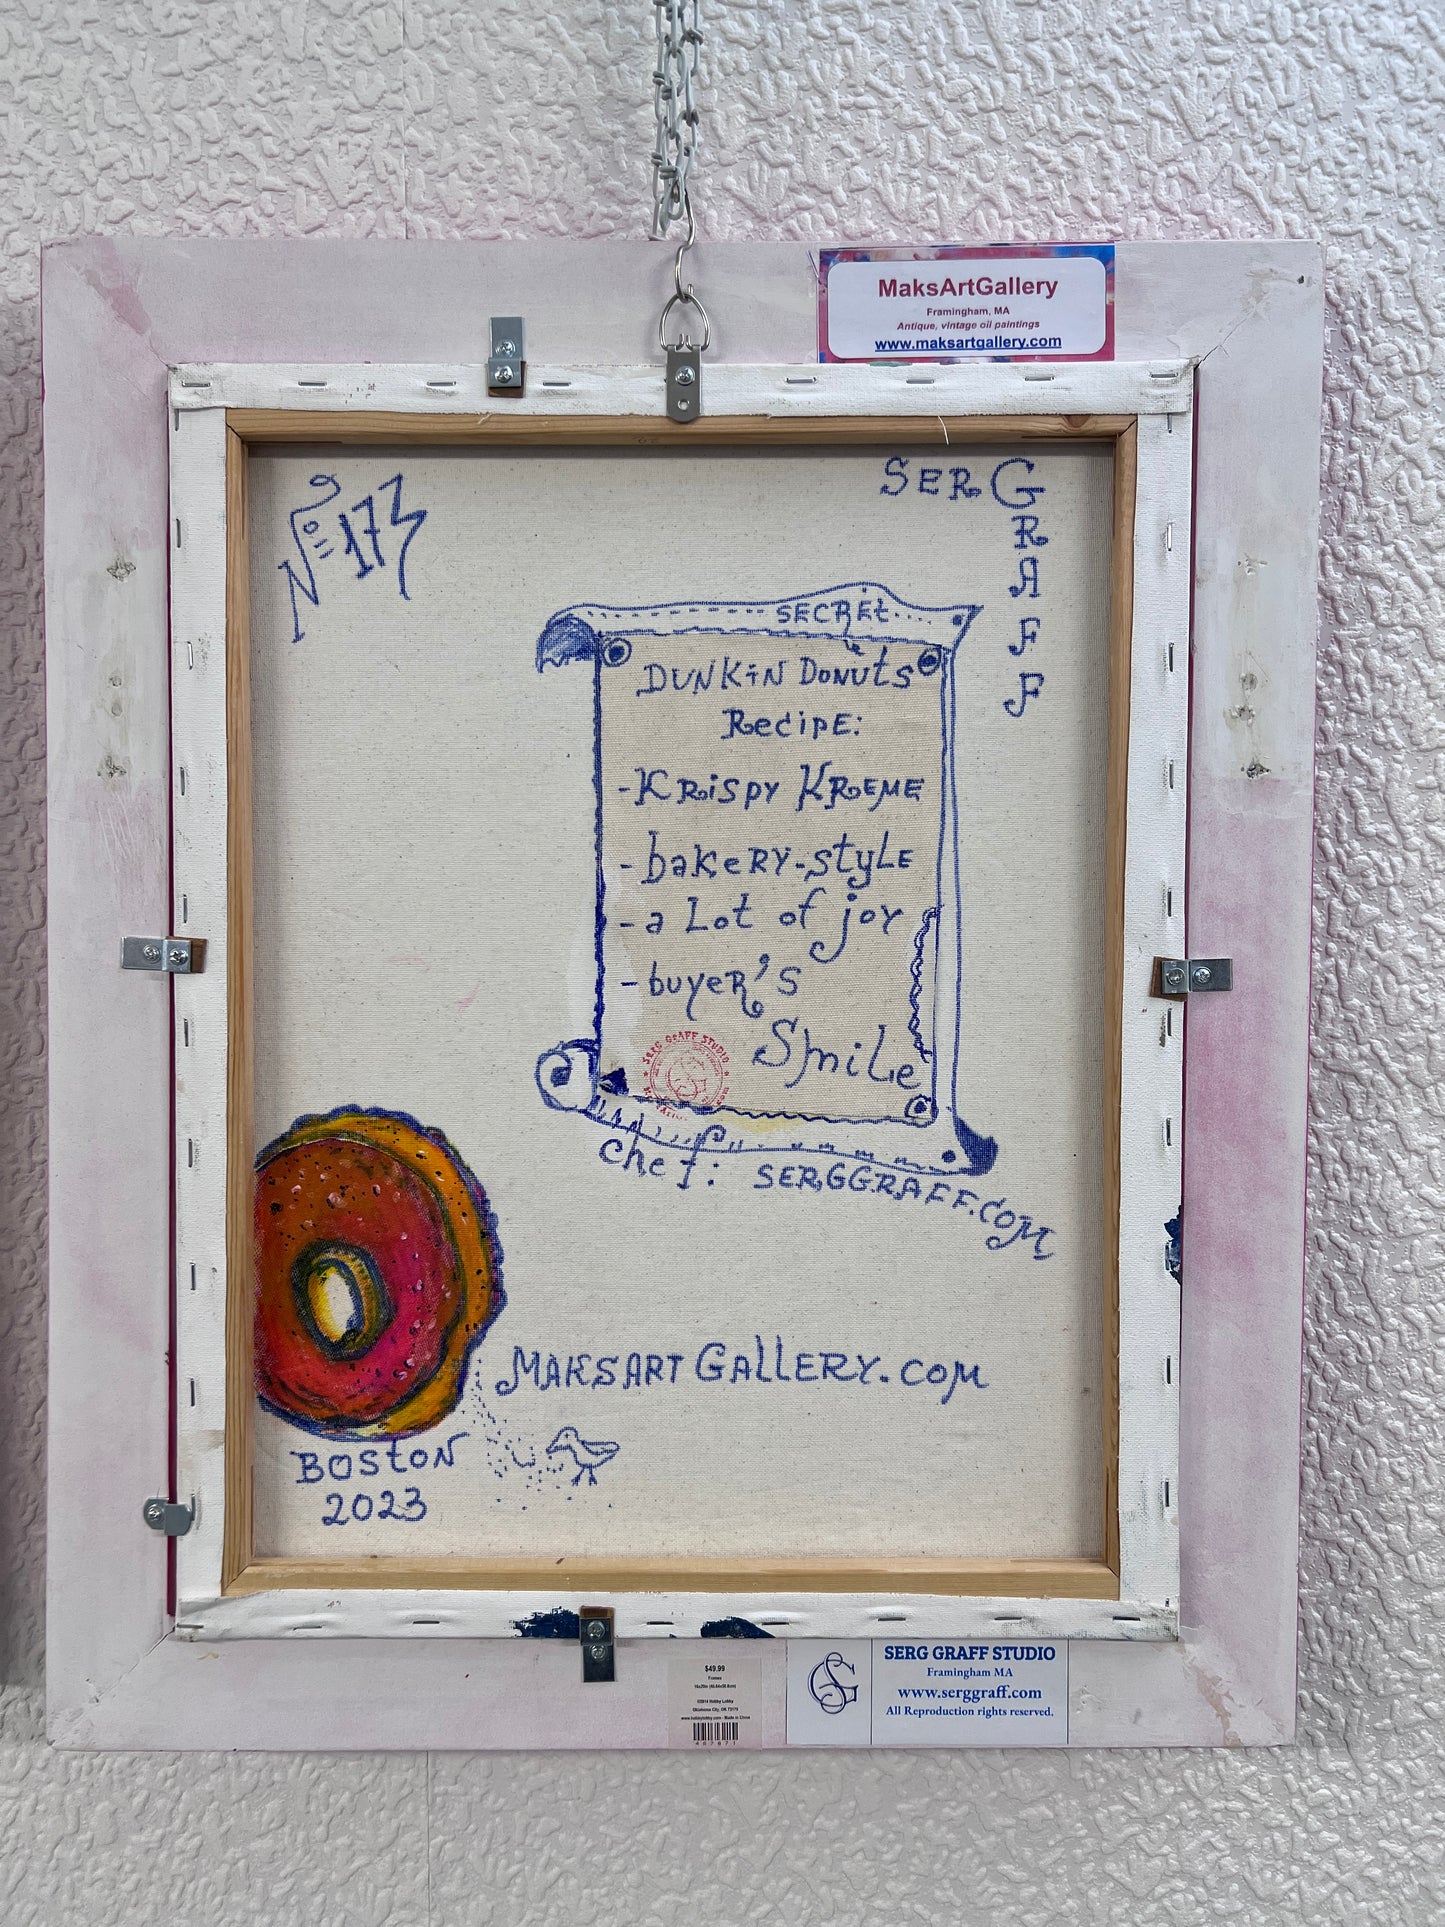 MaksArtGallery
Framingham, MA
Antique, vintage oil paintings
www.maksartgallery.com
№ 173
SERGRAFF
SECREt
DUNKiN DONUtS
RecipE:
-KRiSpy KREME
-bakeRY-styLE
-a Lot of joy
-buyeR'S
SmiLe
SERG GRAFF STUDIO
chef: SERGGRAFF.COM
MAKSART GALLERY.COM
BOStON
2023
$49.99
Frames
©2014 Hobby Lobby
Oklahoma City, OK 73179
www.hobbylobby.com - Made in China
SERG GRAFF STUDIO
Framingham MA
www.serggraff.com
All Reproduction rights reserved.